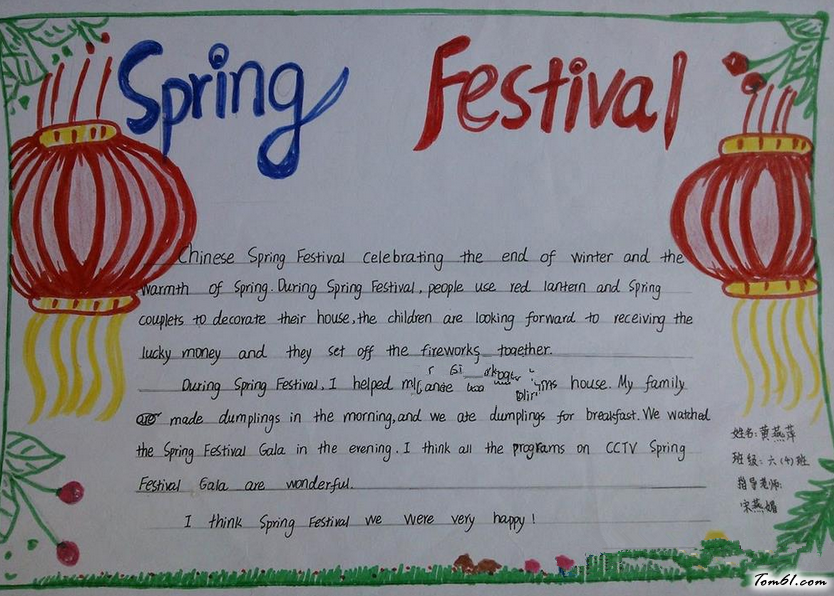 Spring Festival
Chinese Spring Festival celebrating the end of winter and the
warmth of Spring. During Spring Festival, people use red lantern and Spring
couplets to decorate their house, the children are looking forward to receiving the
lucky money and they set off the fireworks together.
During Spring Festival, I helped house. My family
made dumplings in the morning, and we ate dumplings for breakfast. We watched
the Spring Festival Gala in the evening. I think all the programs on CCTV Spring
Festival Gala are wonderful.
I think Spring Festival we were very happy!
姓名: 黄燕萍
班级: 六(4)班
指导老师:
宋燕媚
Tom61.com